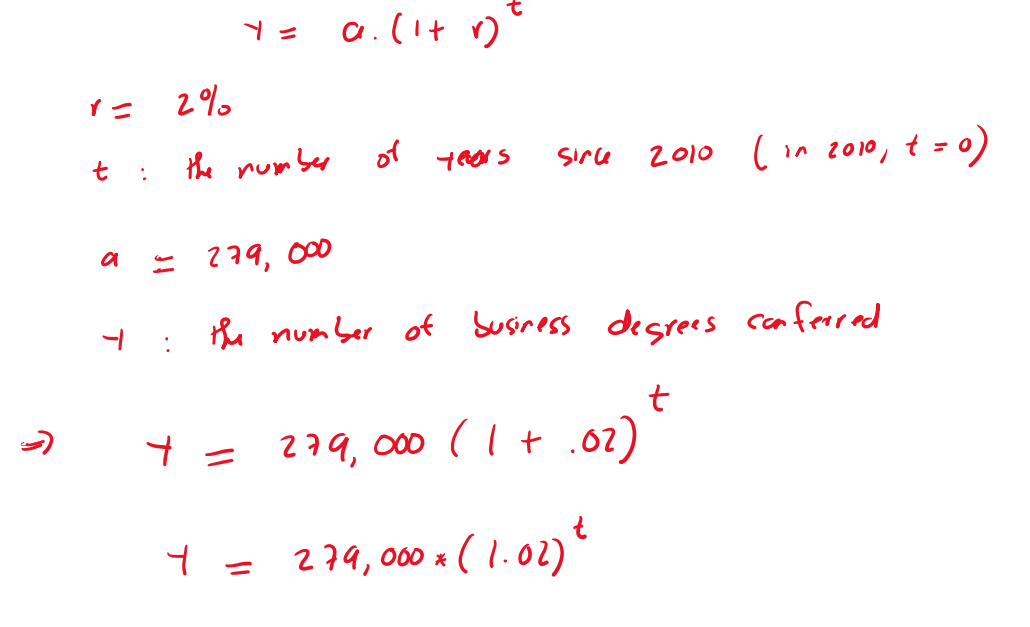 y = a.(1+ r)^t
r = 2%
t : the number of years since 2010 ( in 2010, t = 0)
a = 279, 000
y : the number of business degrees conferred
⇒ y = 279, 000 ( 1 + .02)^t
y = 279, 000 * ( 1.02)^t